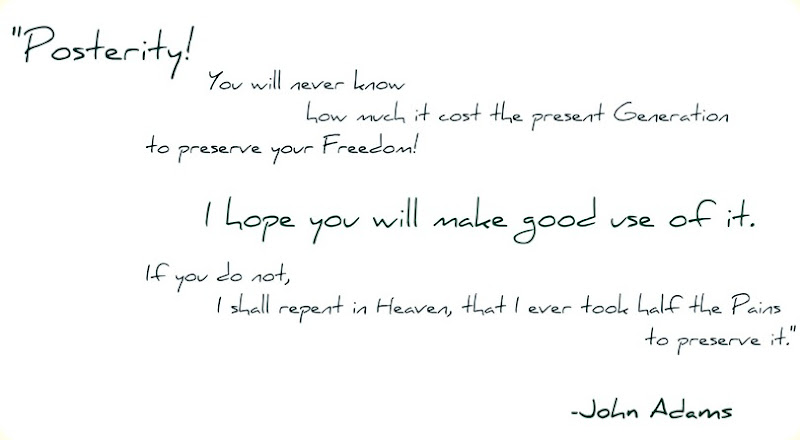 "Posterity!
You will never know
how much it cost the present Generation
to preserve your Freedom!
I hope you will make good use of it.
If you do not,
I shall repent in Heaven, that I ever took half the Pains
to preserve it."
-John Adams